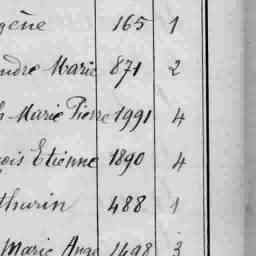 gène 165 1
ndre Marie 871 2
h Marie Pierre 1991 4
çois Etienne 1890 4
thurin 488 1
Marie Ange 1498 3